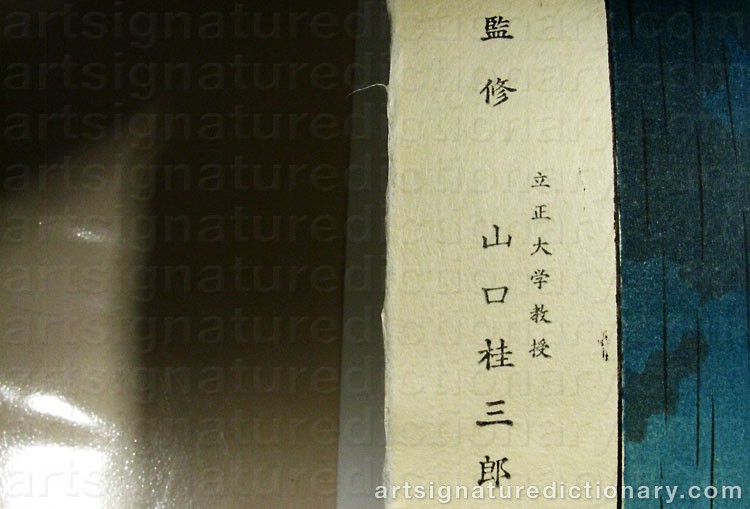 監修
立正大学教授
山口桂三郎
artsignaturedictionary.com